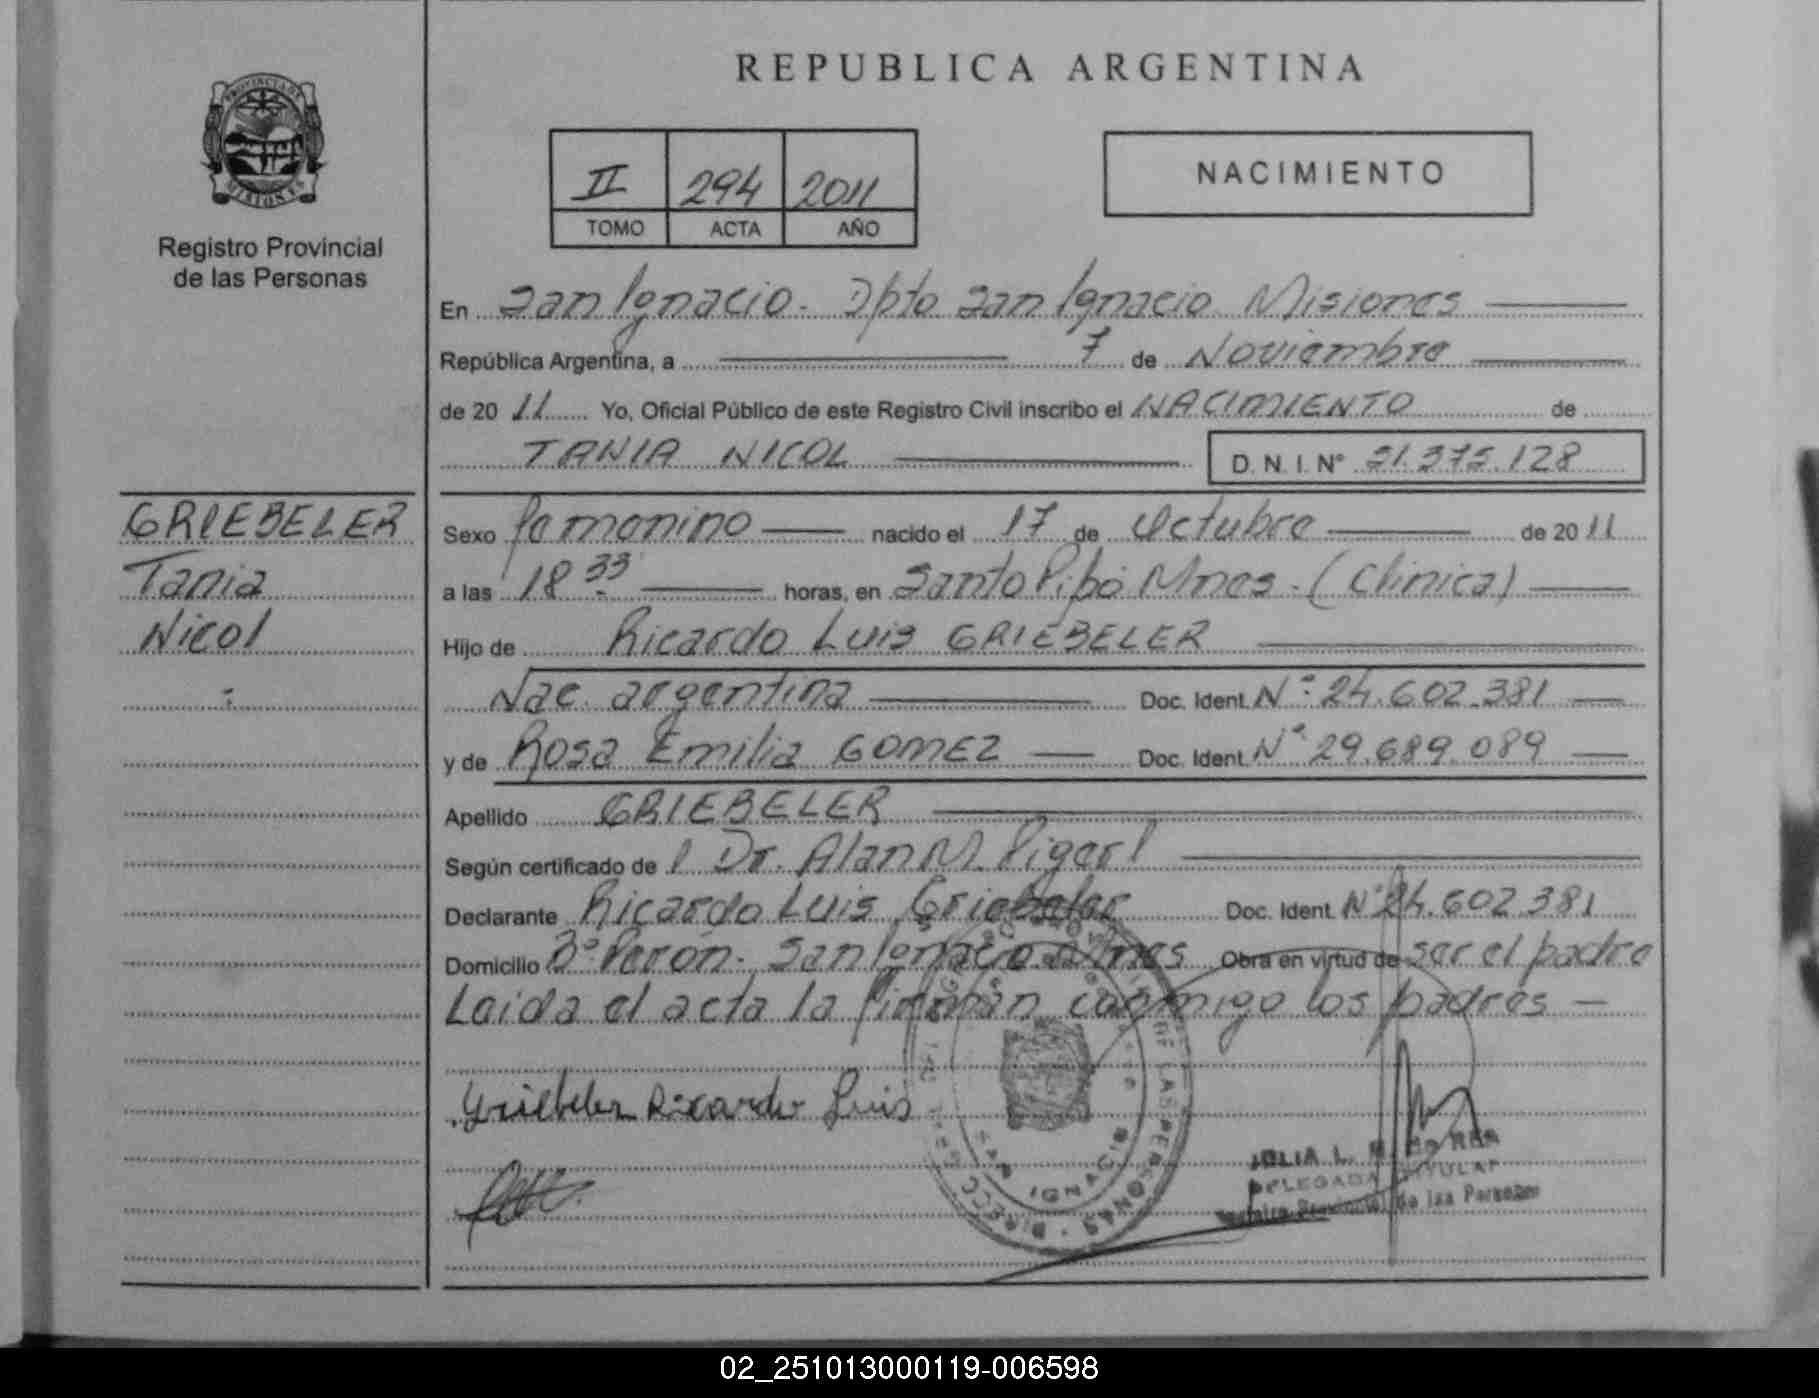 REPUBLICA ARGENTINA
PROVINCIA DE MISIONES
Registro Provincial
de las Personas
II 294 2011
TOMO ACTA AÑO
NACIMIENTO
En San Ignacio. Dpto San Ignacio Misiones
República Argentina, a 7 de Noviembre
de 20 11 Yo, Oficial Público de este Registro Civil inscribo el NACIMIENTO de
TANIA NICOL D.N.I. Nº 51.375.128
GRIEBELER
Tania
Nicol
Sexo femenino nacido el 17 de Octubre de 20 11
a las 18 33 horas, en Santo Pipó Mnes. (Clinica)
Hijo de Ricardo Luis GRIEBELER
Nac. argentina Doc. Ident. Nº 24.602.381
y de Rosa Emilia GOMEZ Doc. Ident. Nº 29.689.089
Apellido GRIEBELER
Según certificado de l Dr. Alan M.
Declarante Ricardo Luis Griebeler Doc. Ident. Nº 24.602.381
Domicilio Bº Perón. San Ignacio Mnes Obra en virtud de ser el padre
Leida el acta la firman conmigo los padres
Griebeler Ricardo Luis
SAN IGNACIO
JULIA L.
DELEGADA TITULAR
Registro Provincial de las Personas
02_251013000119-006598